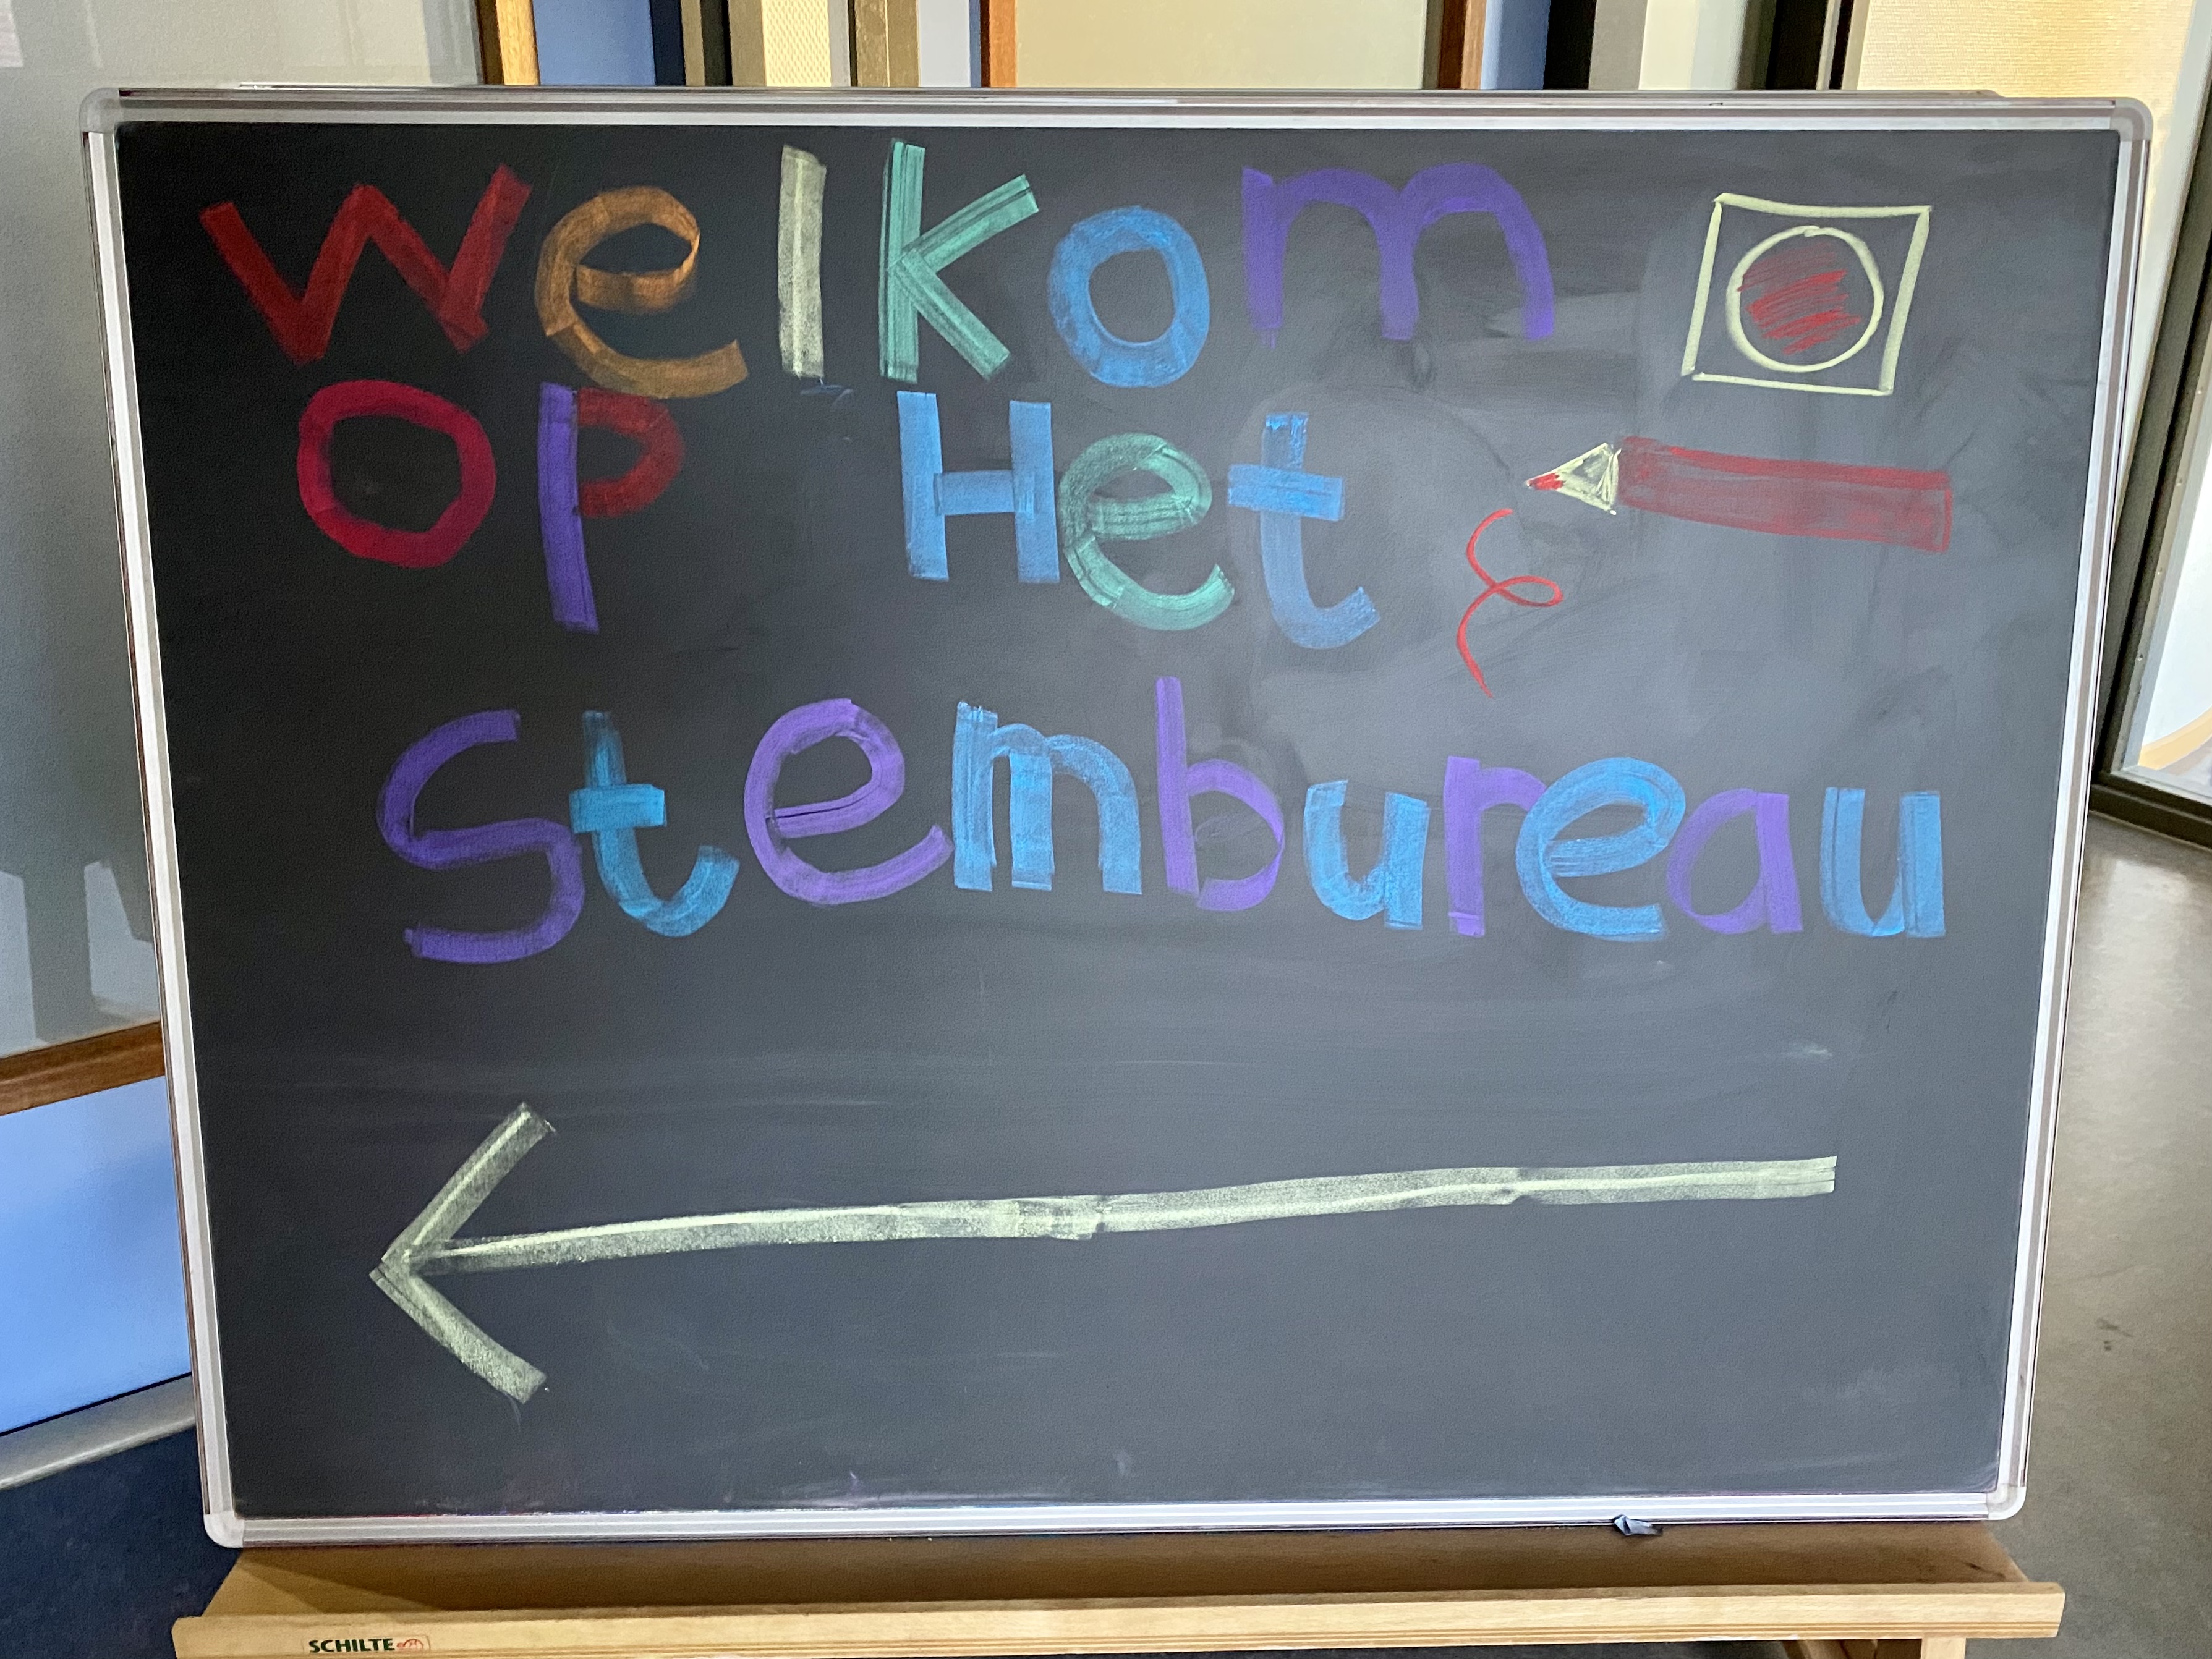 Welkom
op Het
Stembureau
SCHILTE